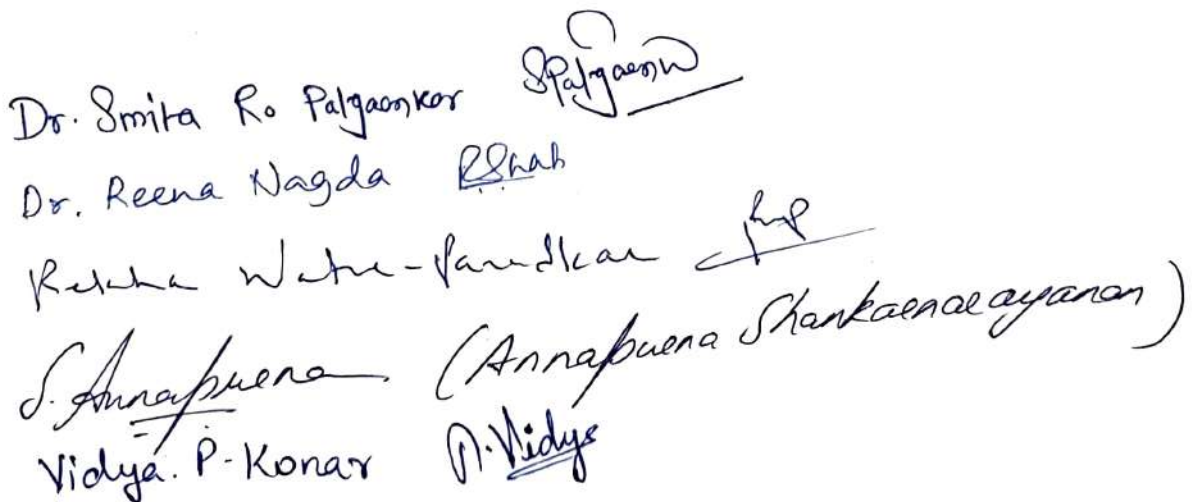 Dr. Smita R. Palgaonkar SPalgaonkr
Dr. Reena Nagda RShah
Rekha Watve-Paradkar
S. Annapurna (Annapurna Shankarnarayanan)
Vidya. P. Konar P. Vidya